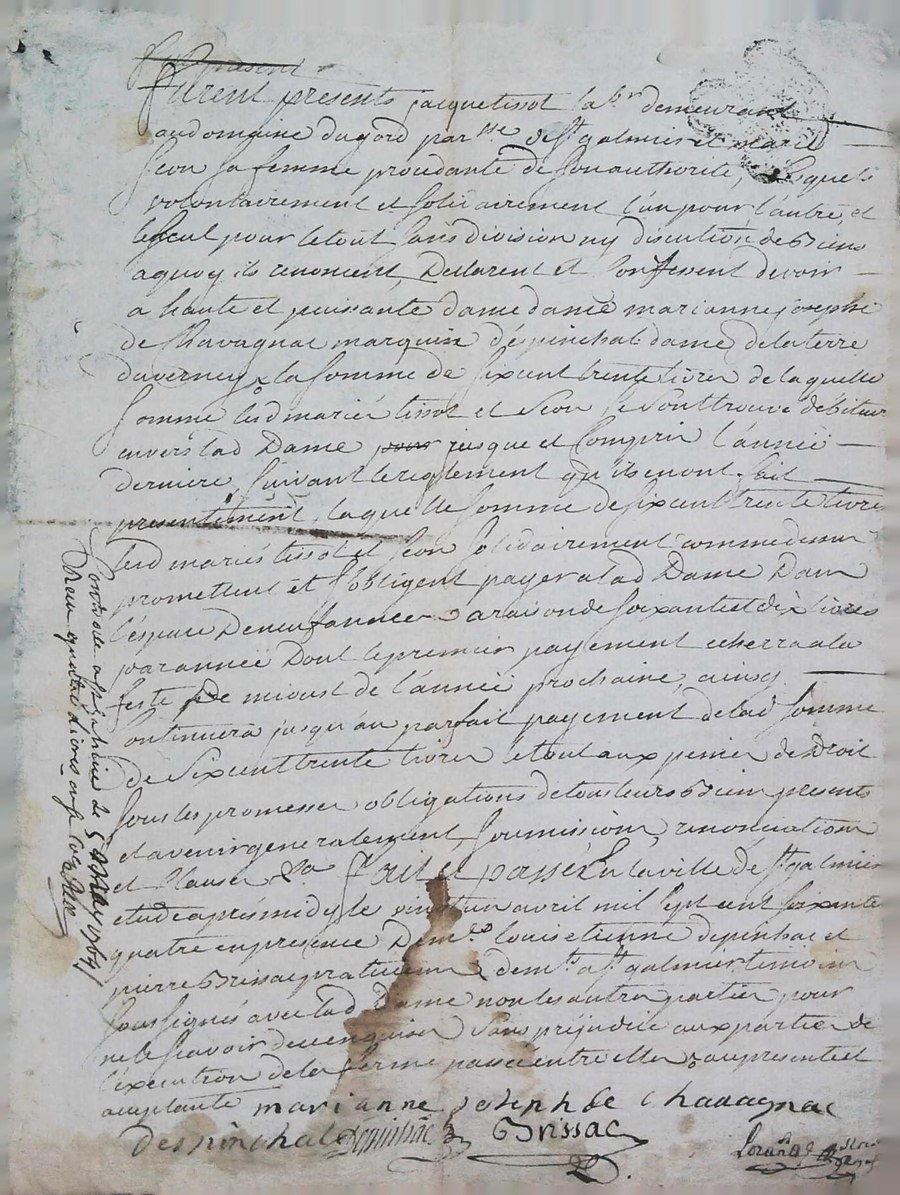 furent presents jacque tissot lab.r demeurant
au domaine du gord par.sse de st galmier et marie
Seon sa femme procedante de son authorité, lesquels
volontairement et solidairement l'un pour l'autre et
le seul pour le tout sans division ny discution de biens
a quoy ils renoncent, Declarent et Confessent devoir
a haute et puissante dame dame marianne josephe
de Chavagnac marquise d'épinchal dame de la terre
daverney la somme de six cent trente livres de laquelle
somme lesd mariés tissot et Seon se sont trouvé débiteurs
envers lad Dame pour jusque et Compris l'année
derniere, suivant le reglement qu'ils en ont fait
presentement, laquelle somme de six cent trente livres
lesd mariés tissot et Seon solidairement comme dessus
promettent et s'obligent payer a lad Dame Dans
l'espace De neuf années a raison de soixante et dix livres
par année Dont le premier payement echerra a la
feste De mioust de l'année prochaine, ainsy
Continuera jusqu'au parfait payement de lad somme
de six cent trente livres le tout aux peines de Droit
sous les promesses obligations de tous leurs biens presents
et avenir generalement, soumissions, renonciations
et Clauses &a fait et passé En la ville de st galmier
etude apres midy le vingt un avril mil sept cent soixante
quatre en presence De louis etienne depinhac et
pierre Brissac praticiens dem.ts a st galmier temoins
soussignés avec lad Dame non les autres parties pour
ne le scavoir de ce enquises sans préjudice aux parties de
l'éxécution de la ferme passé entre elles
marianne joseph de Chavagnac
despinchal Depinhac Brissac
Controllé a st galmier le 5 May 1764
Reçu quatre livres